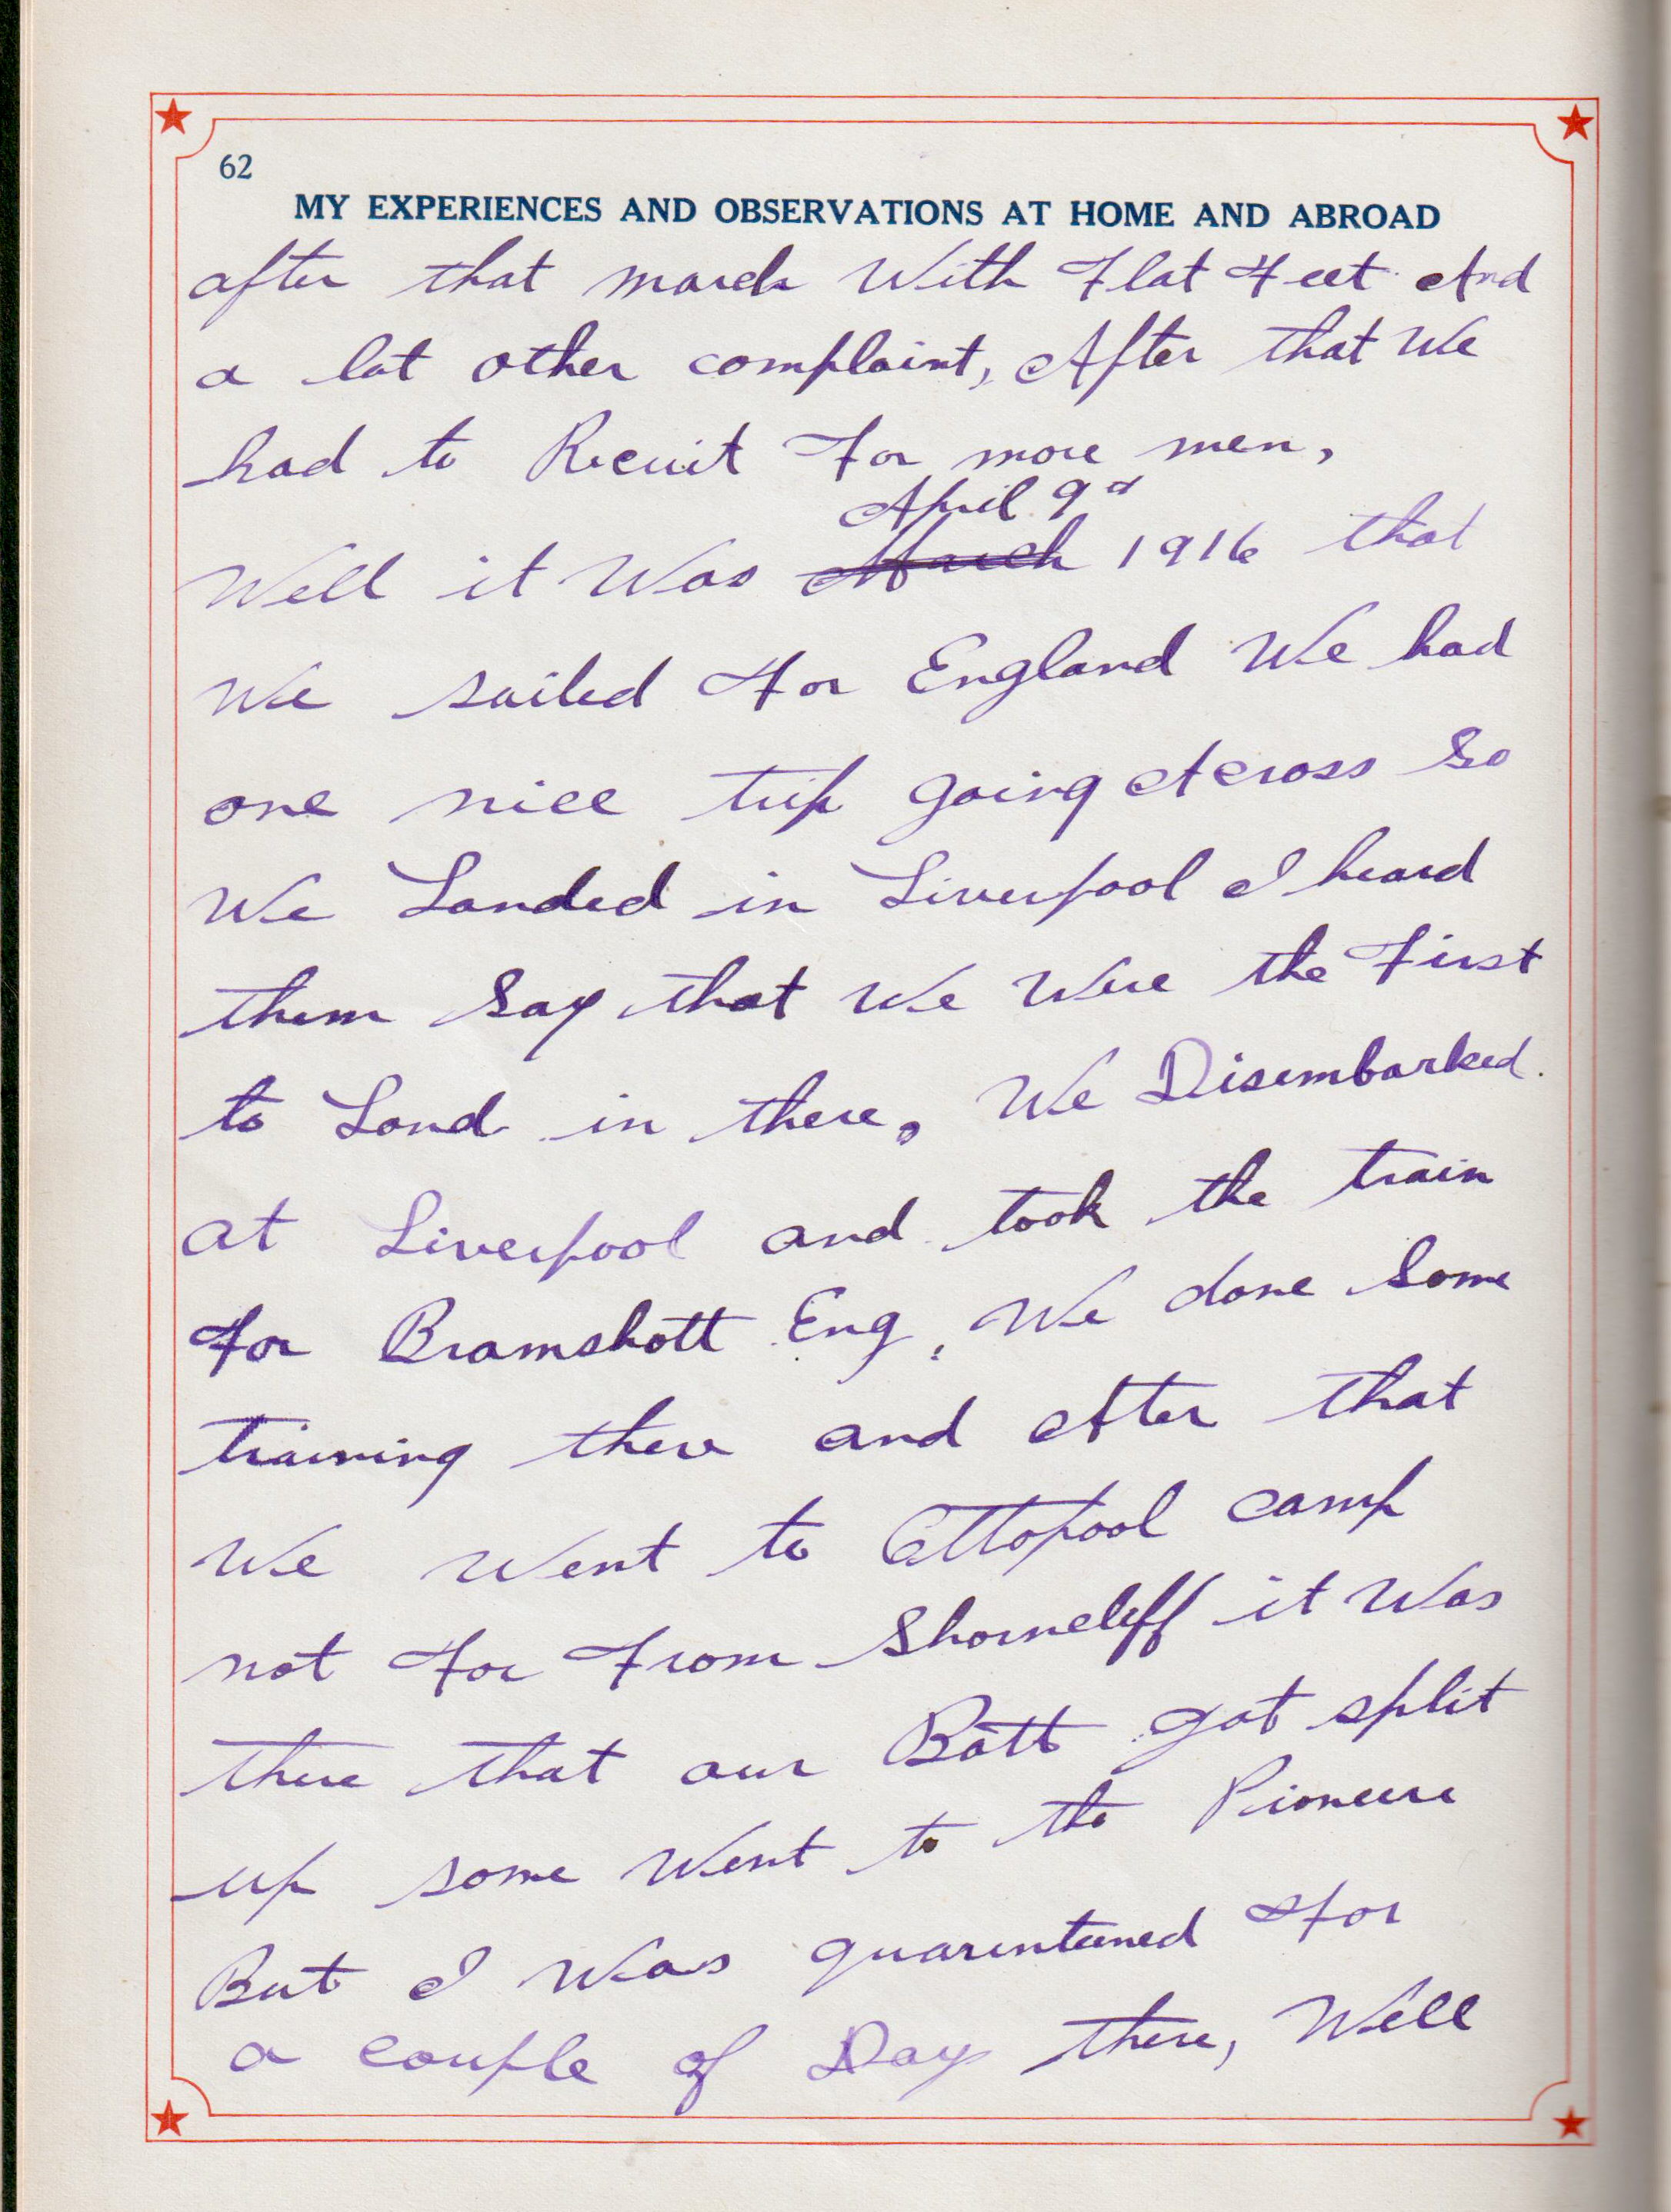 62
MY EXPERIENCES AND OBSERVATIONS AT HOME AND ABROAD
after that march With Flat Feet And
a lot other complaint, After that We
had to Recuit For more men,
April 9d
Well it Was March 1916 that
We sailed For England We had
one nice trip going Across So
We Landed in Liverpool I heard
them Say that We Were the First
to Land in there, We Disembarked.
at Liverpool and took the train
For Bramshott Eng, We done Some
training there and After that
We Went to Ottopool camp
not Far From Shorncliff it Was
there that our Batt got split
up some Went to the Pioneers
But I Was quarenteened For
a couple of Days there, Well